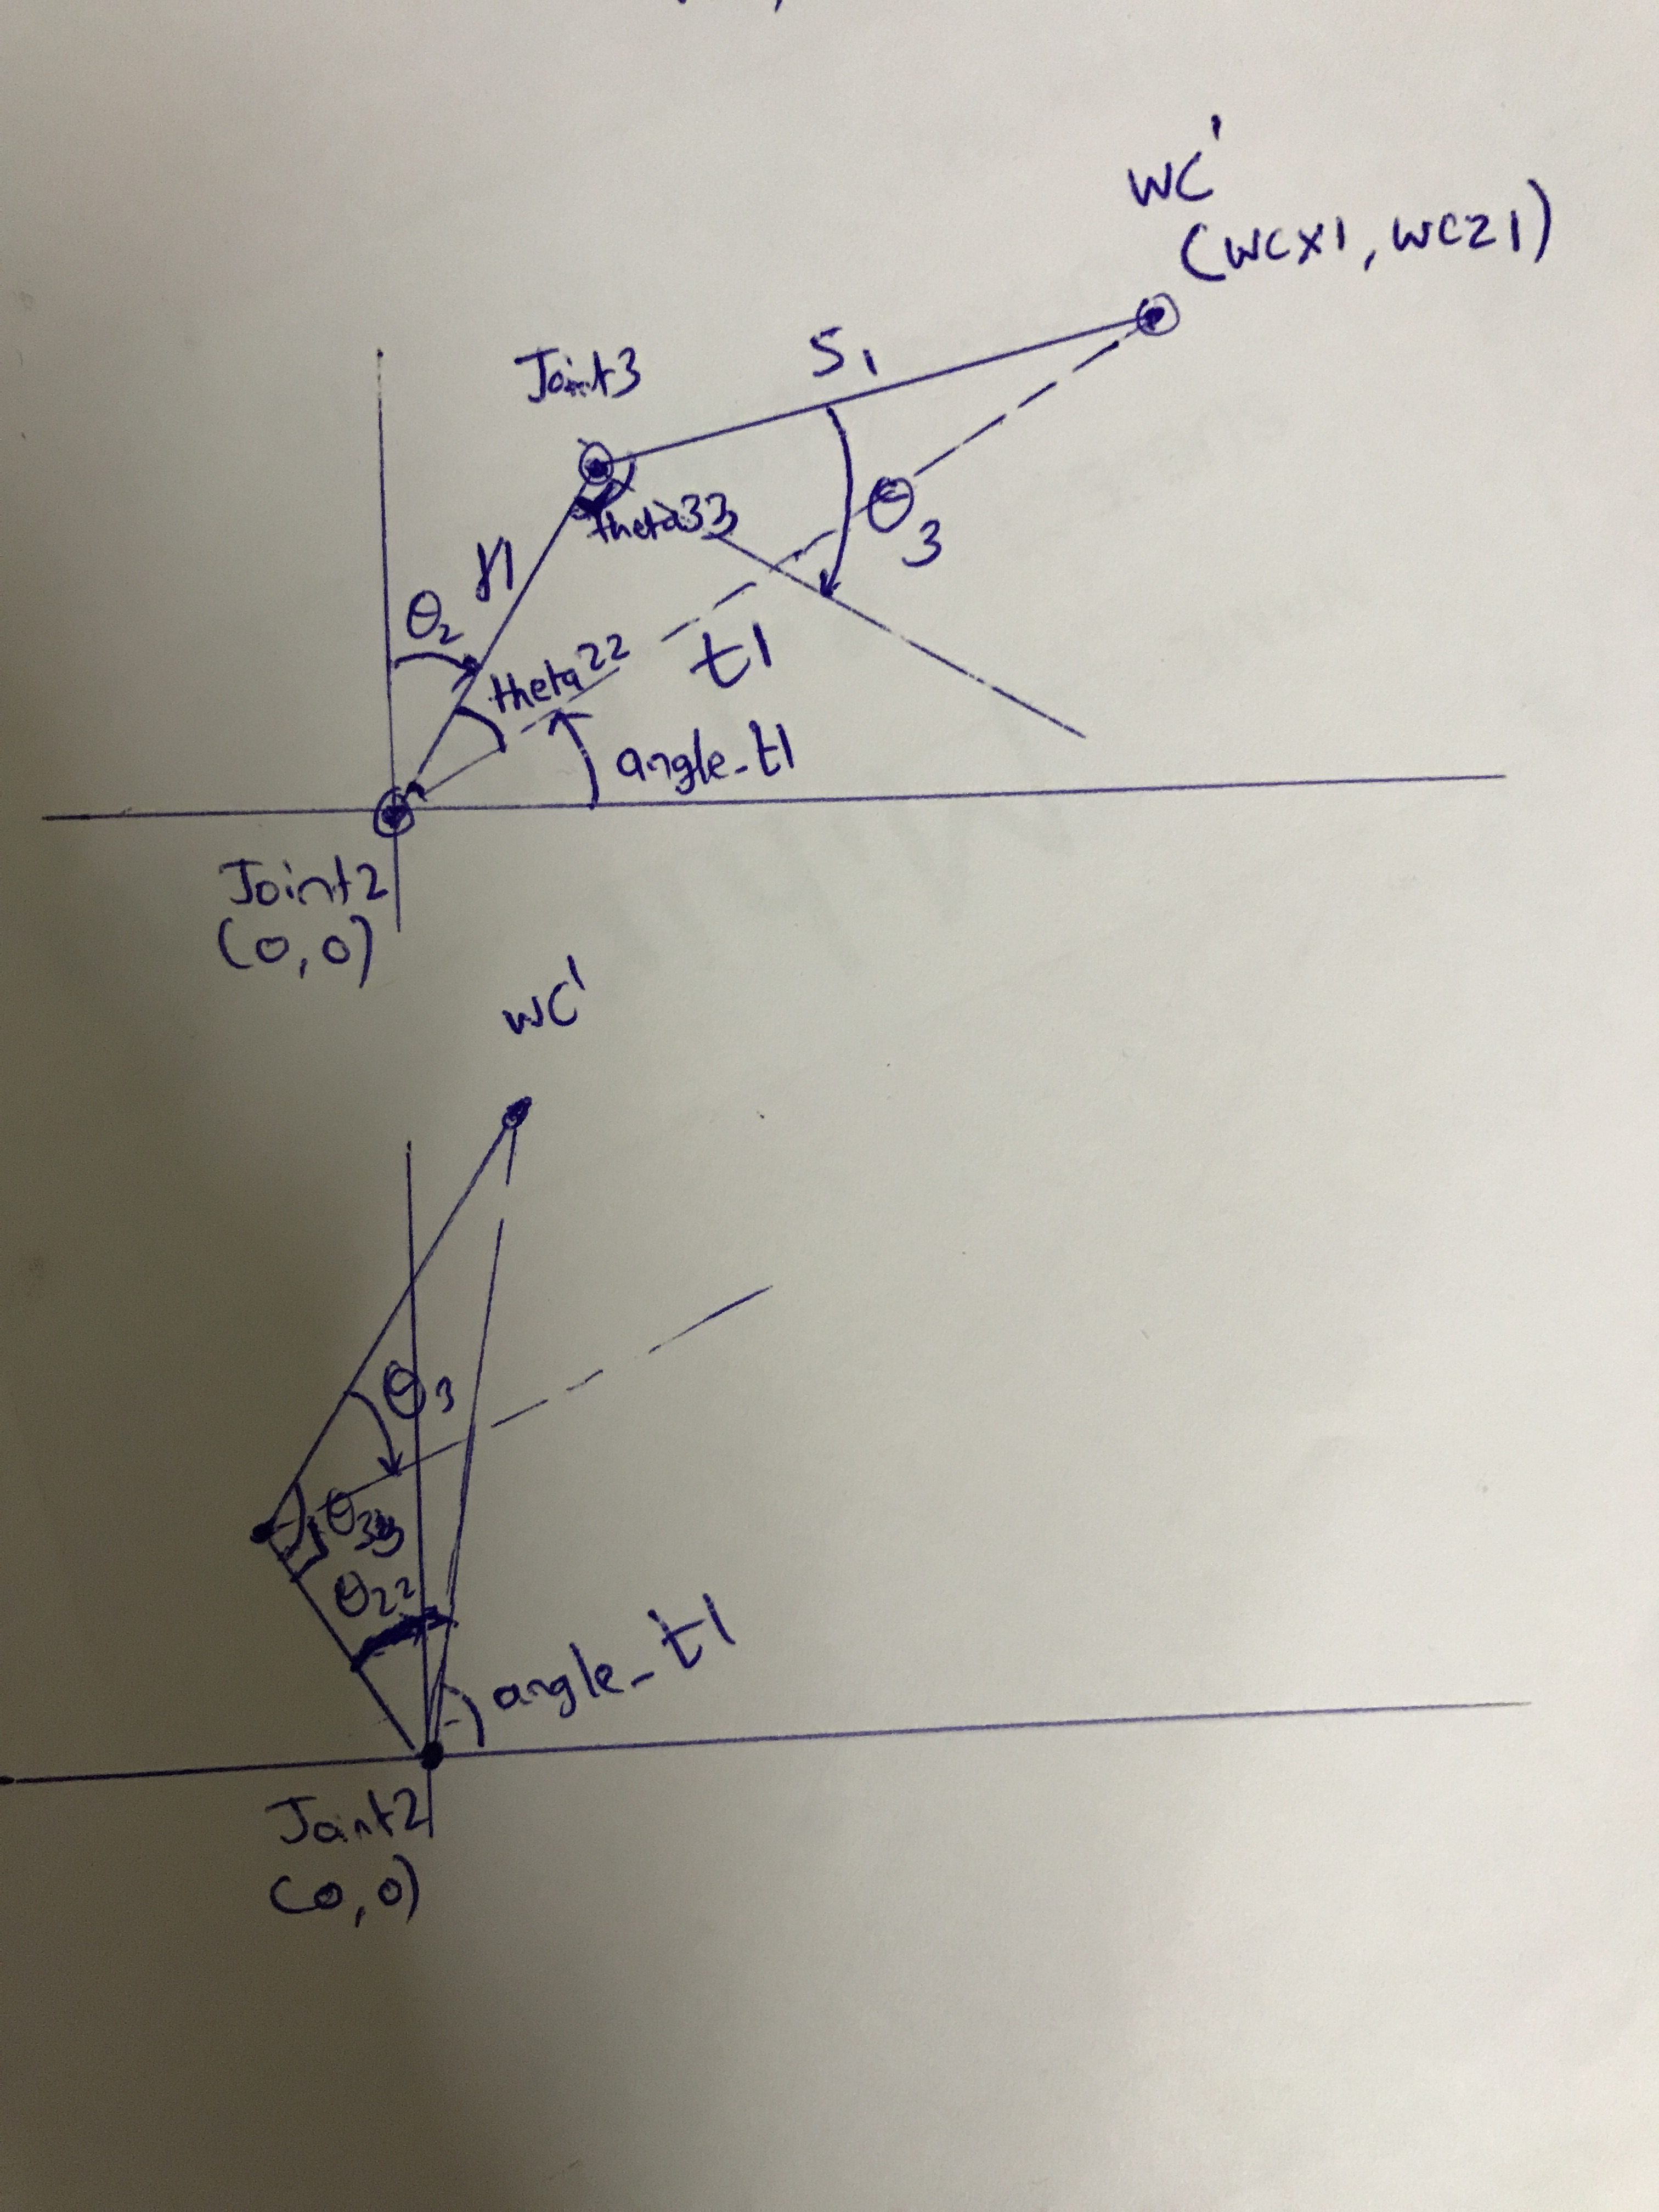 WC'
(WCX1, WCZ1)
S1
Joint3
theta33
θ3
r1
θ2
theta22
t1
angle_t1
Joint2
(0,0)
WC'
θ3
θ33
θ22
angle_t1
Joint2
(0,0)